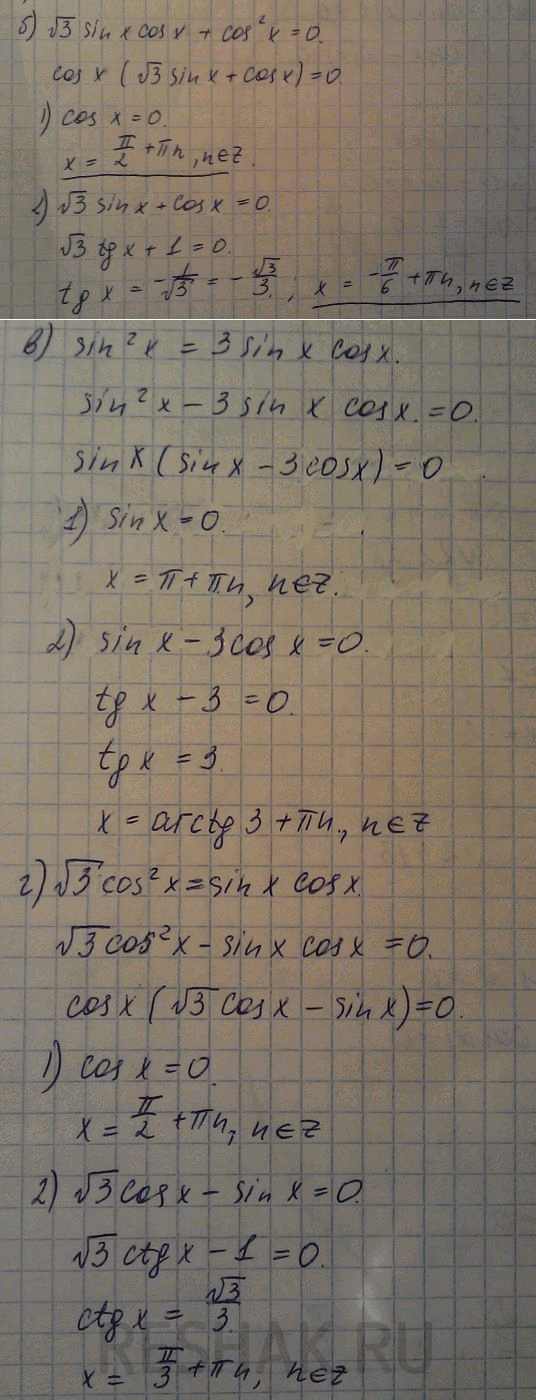 б) √3 sin x cos x + cos²x = 0.
cos x (√3 sin x + cos x) = 0.
1) cos x = 0.
x = π/2 + πn, n∈Z.
2) √3 sin x + cos x = 0.
√3 tg x + 1 = 0.
tg x = -1/√3 = -√3/3. ; x = -π/6 + πn, n∈Z
в) sin²x = 3 sin x cos x.
sin²x - 3 sin x cos x = 0.
sin x (sin x - 3cos x) = 0
1) sin x = 0.
x = π + πn, n∈Z.
2) sin x - 3cos x = 0.
tg x - 3 = 0.
tg x = 3.
x = arctg 3 + πn., n∈Z
г) √3 cos²x = sin x cos x.
√3 cos²x - sin x cos x = 0.
cos x (√3 cos x - sin x) = 0.
1) cos x = 0.
x = π/2 + πn, n∈Z
2) √3 cos x - sin x = 0.
√3 ctg x - 1 = 0.
ctg x = √3/3.
x = π/3 + πn, n∈Z
RESHAK.RU